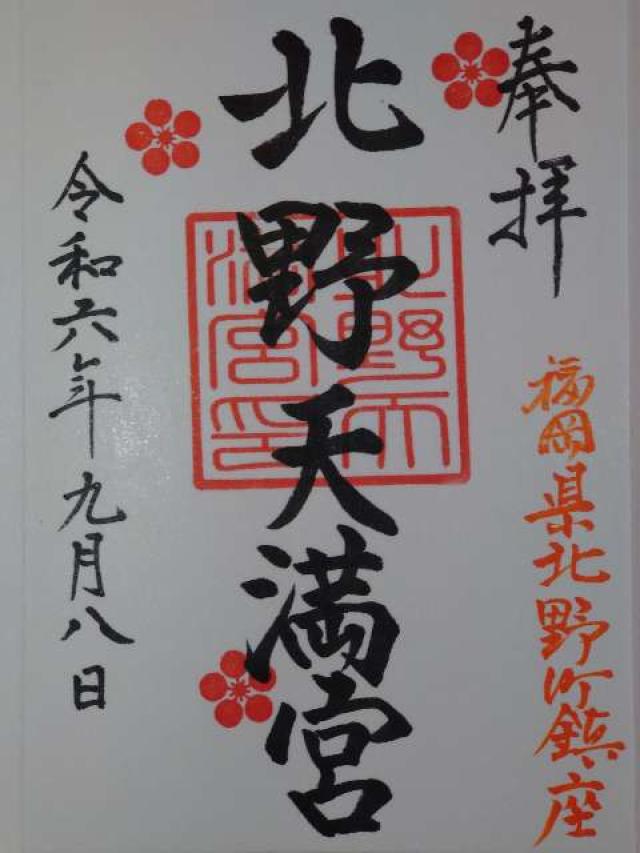 奉拝
福岡県北野町鎮座
北野天満宮
北野天満宮印
令和六年九月八日